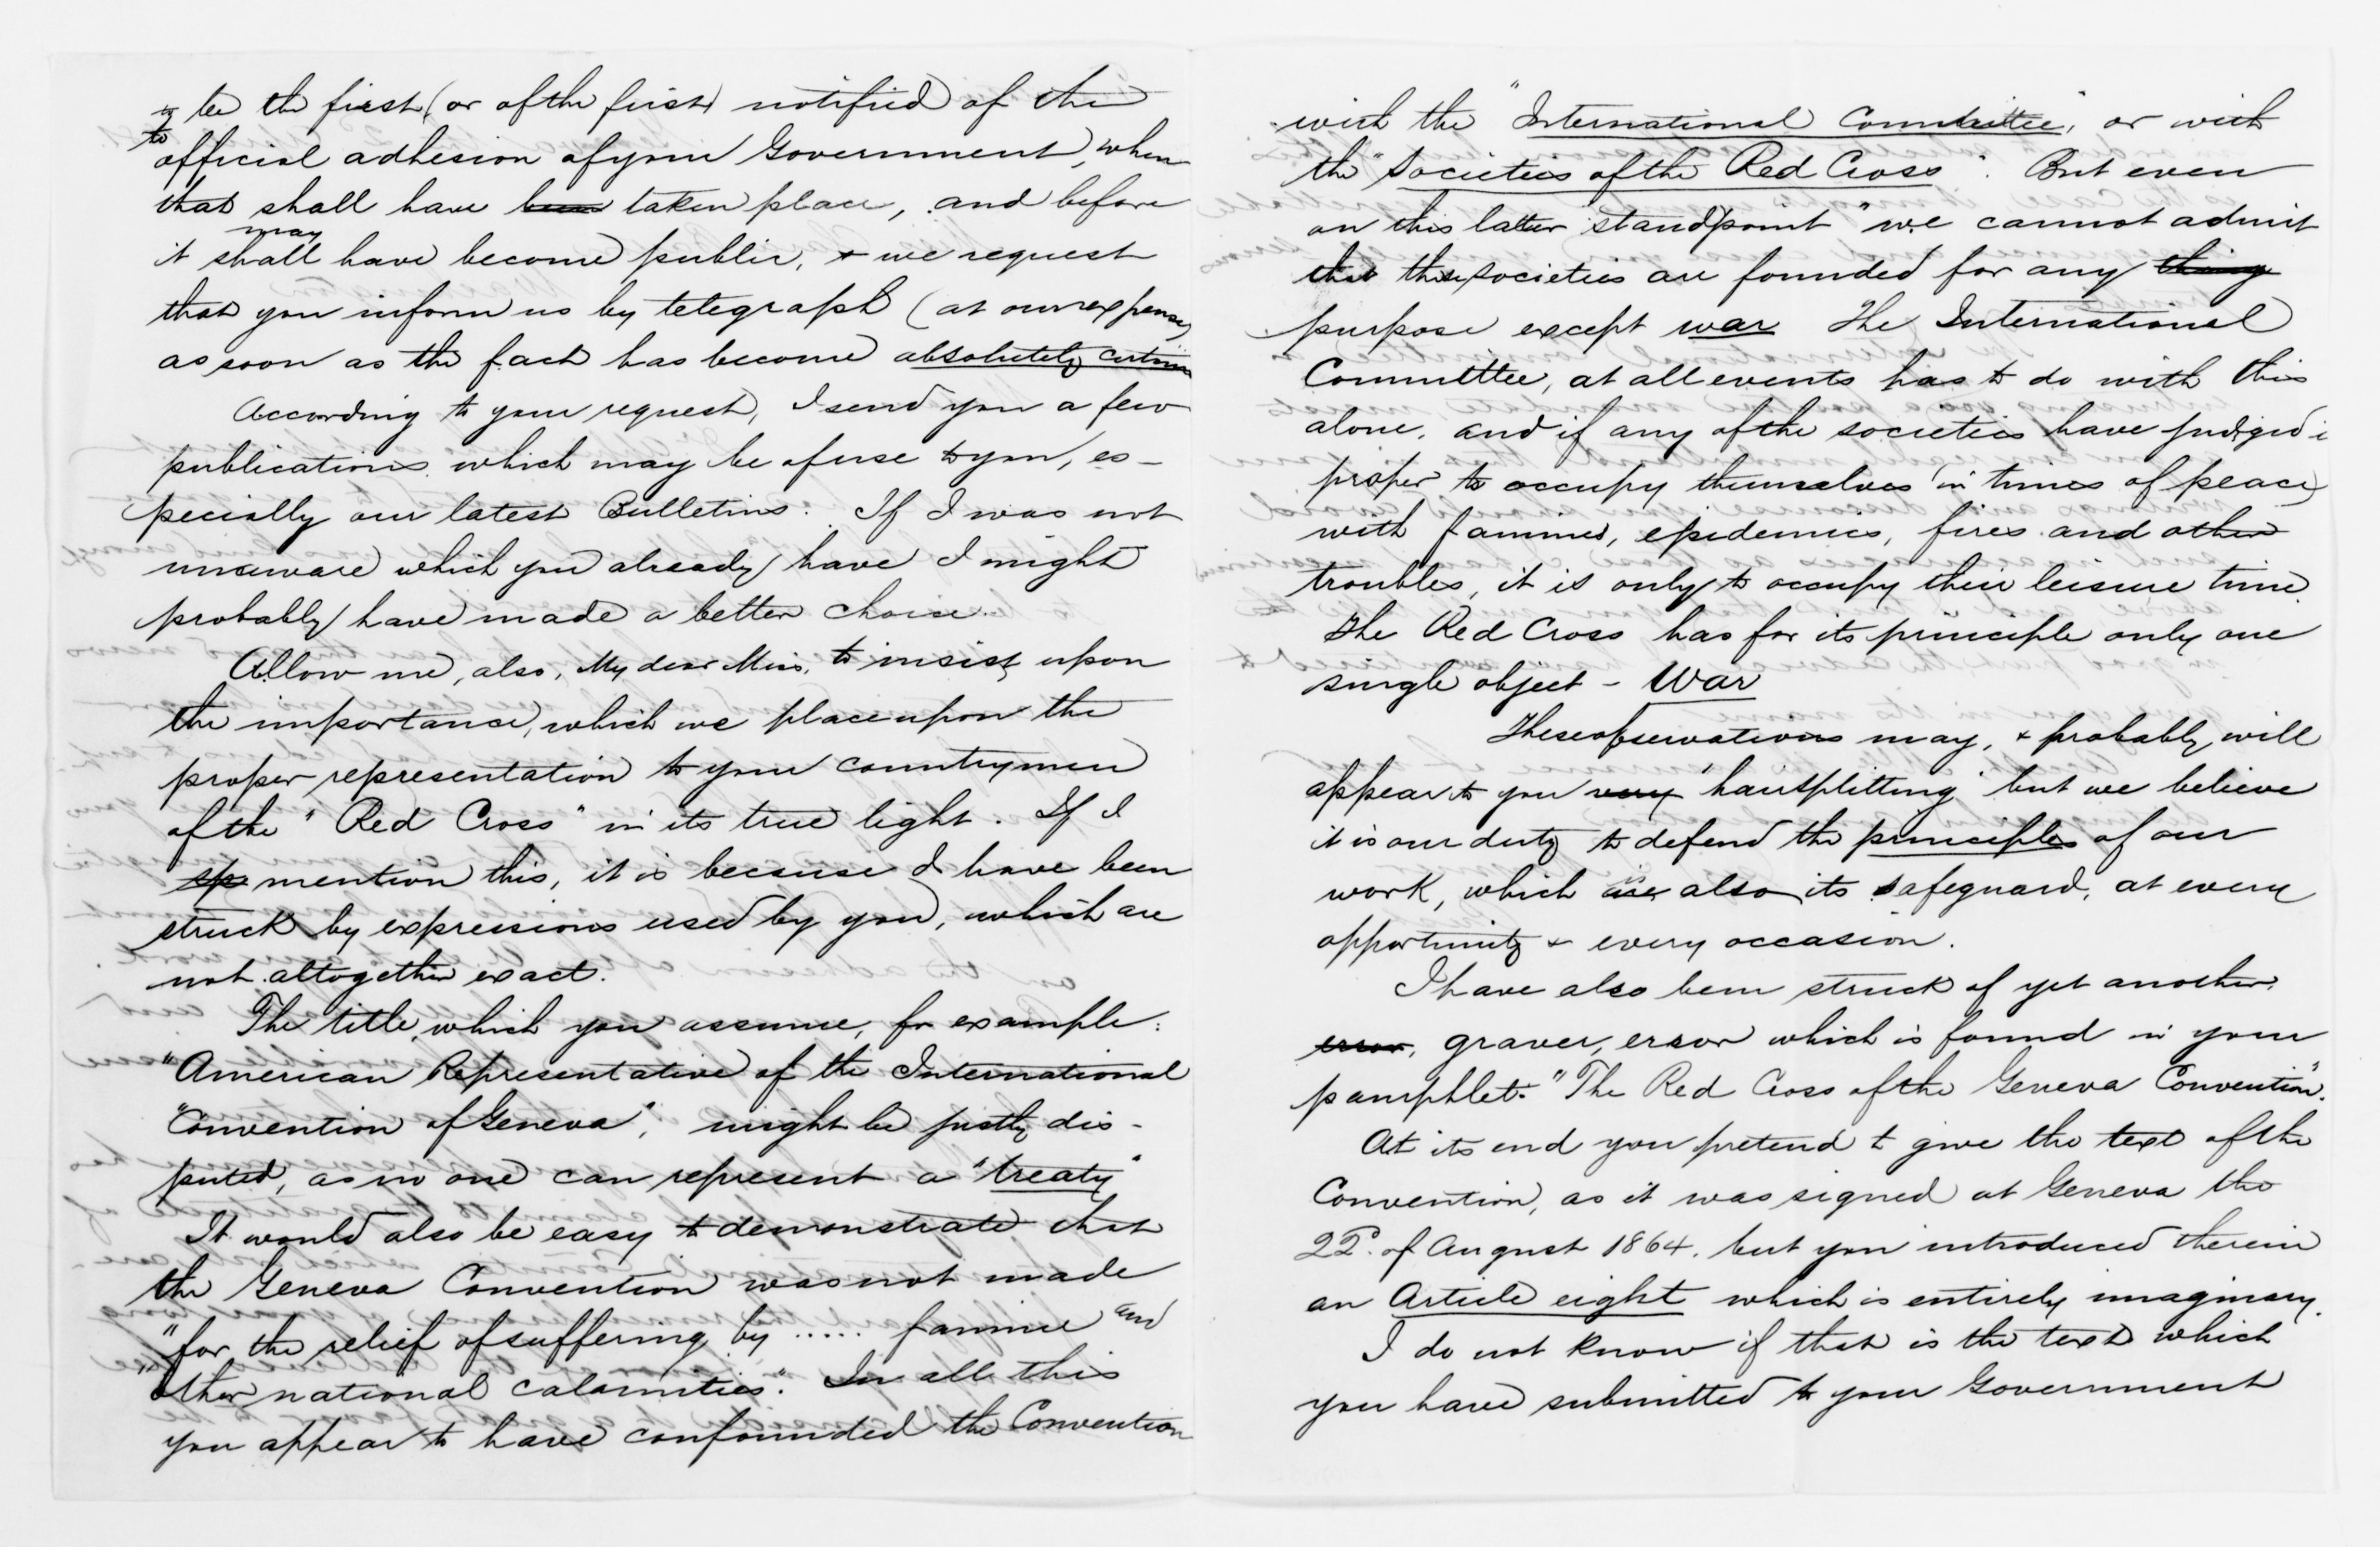 to be the first (or of the first) notified of the
official adhesion of your Government, when
that shall have been taken place, and before
may
it shall have become public, & we request
that you inform us by telegraph (at our expense)
as soon as the fact has become absolutely certain
According to your request, I send you a few
publications which may be of use to you, es-
pecially our latest Bulletins. If I was not
unaware which you already have I might
probably have made a better choice.
Allow me, also, My dear Miss, to insist upon
the importance, which we place upon the
proper representation to your countrymen
of the "Red Cross" in its true light. If I
mention this, it is because I have been
struck by expressions used by you, which are
not altogether exact.
The title, which you assume, for example:
"American Representative of the International
"Convention of Geneva", might be justly dis-
puted, as no one can represent a "treaty"
It would also be easy to demonstrate that
the Geneva Convention was not made
"for the relief of suffering by ..... famine and
"other national calamities". In all this
you appear to have confounded the Convention
with the "International Committee", or with
the "Societies of the Red Cross". But even
on this latter "standpoint" we cannot admit
that these societies are founded for any thing
purpose except war The International
Committee, at all events has to do with this
alone. and if any of the societies have judged i
proper to occupy themselves in times of peace
with famines, epidemics, fires and other
troubles, it is only to occupy their leisure time.
The Red Cross has for its principle only one
single object - War
These observations may, & probably will
appear to you very "hairsplitting" but we believe
it is our duty to defend the principles of our
work, which are also its safeguard, at every
opportunity & every occasion.
I have also been struck of yet another,
error, graver, error which is found in your
pamphlet. "The Red Cross of the Geneva Convention".
At its end you pretend to give the text of the
Convention, as it was signed at Geneva the
22d. of August 1864. but you introduced therein
an Article eight which is entirely imaginary.
I do not know if that is the text which
you have submitted to your Government